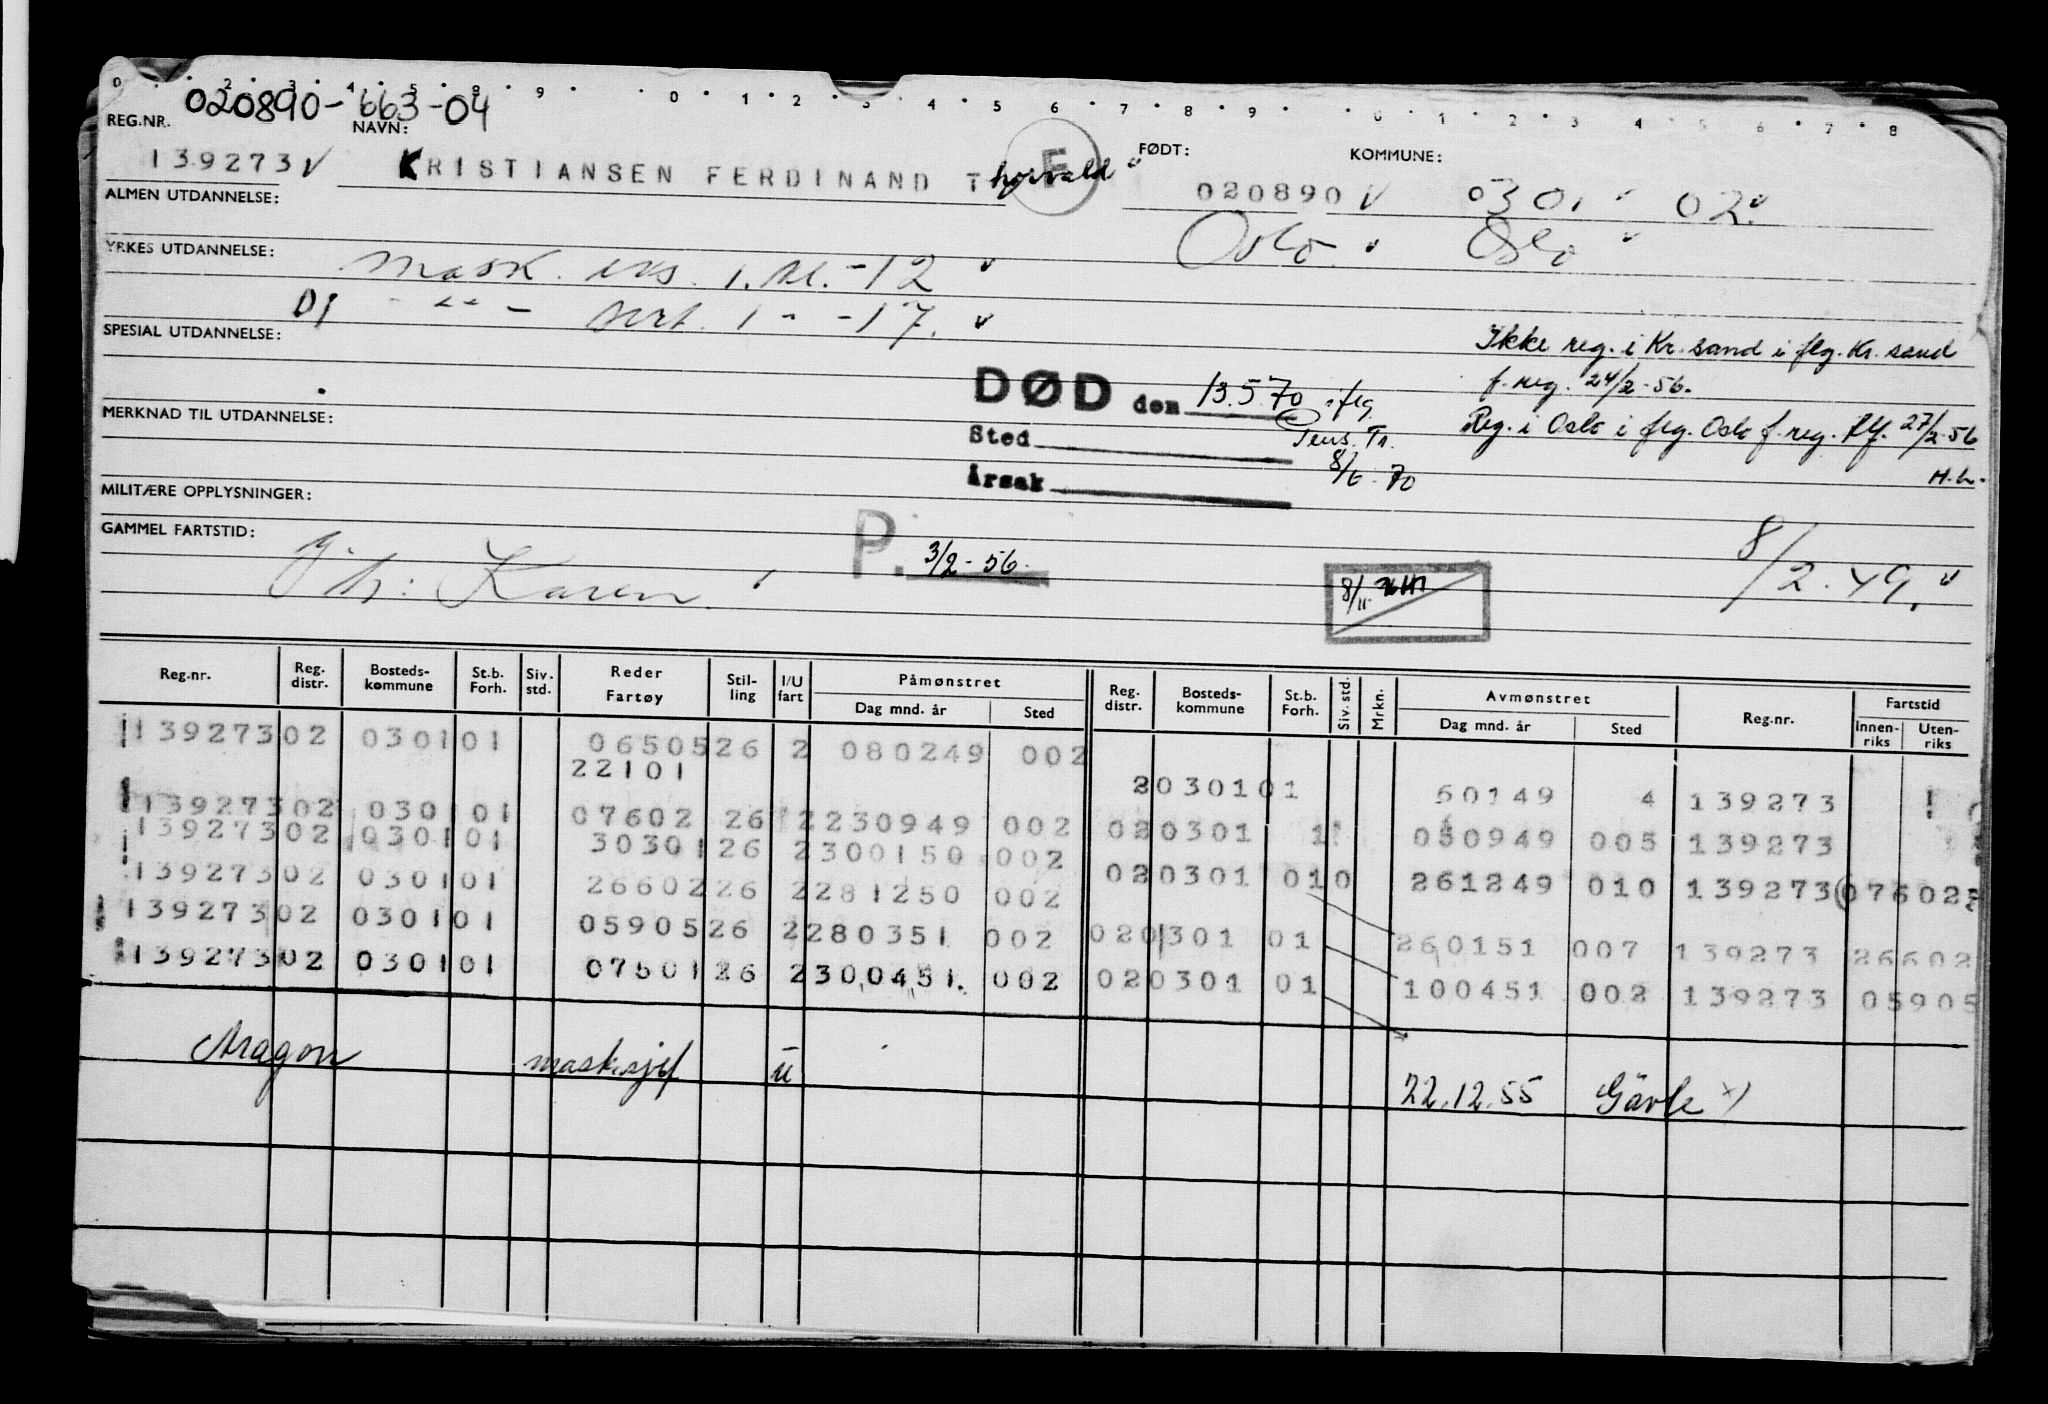 020890-663-04
REG.NR. NAVN: FØDT: KOMMUNE:
139273 KRISTIANSEN FERDINAND Thorvald E 020890 0301 02
ALMEN UTDANNELSE:
Oslo Oslo
YRKES UTDANNELSE:
mask. eks. 1. kl. -12
- " - sert. 1 - -17.
SPESIAL UTDANNELSE:
Ikke reg. i Kr.sand i flg. Kr.sand
f. reg. 24/2-56.
DØD den 13.5.70 iflg.
Pens. Tr.
8/6-70
MERKNAD TIL UTDANNELSE:
Reg. i Oslo i flg. Oslo f. reg. 27/2-56
H.L.
Sted
Årsak
MILITÆRE OPPLYSNINGER:
GAMMEL FARTSTID:
Karen
P. 3/2-56.
8/11
8/2.49.
Reg.nr. Reg. distr. Bosteds-kommune St.b. Forh. Siv. std. Reder Fartøy Stil-ling I/U fart Påmønstret Dag mnd. år Sted Reg. distr. Bosteds-kommune St.b. Forh. Siv. std. Mrkn. Avmønstret Dag mnd. år Sted Reg.nr. Fartstid Innen-riks Uten-riks
139273 02 0301 01 06505 26 2 080249 002
22101 2 0301 01 60149 4 139273
139273 02 0301 01 07602 26 2 230949 002 02 0301 1 050949 005 139273
139273 02 0301 01 30301 26 2 300150 002
139273 02 0301 01 26602 26 2 281250 002 02 0301 010 261249 010 139273 07602
139273 02 0301 01 05905 26 2 280351 002 02 0301 01 260151 007 139273 26602
139273 02 0301 01 07501 26 2 300451 002 02 0301 01 100451 002 139273 05905
Aragon masksjef u 22.12.55 Gävle x)